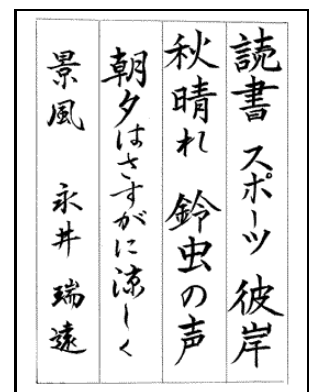 読書 スポーツ 彼岸
秋晴れ 鈴虫の声
朝夕はさすがに涼しく
景風 永井 瑞遠